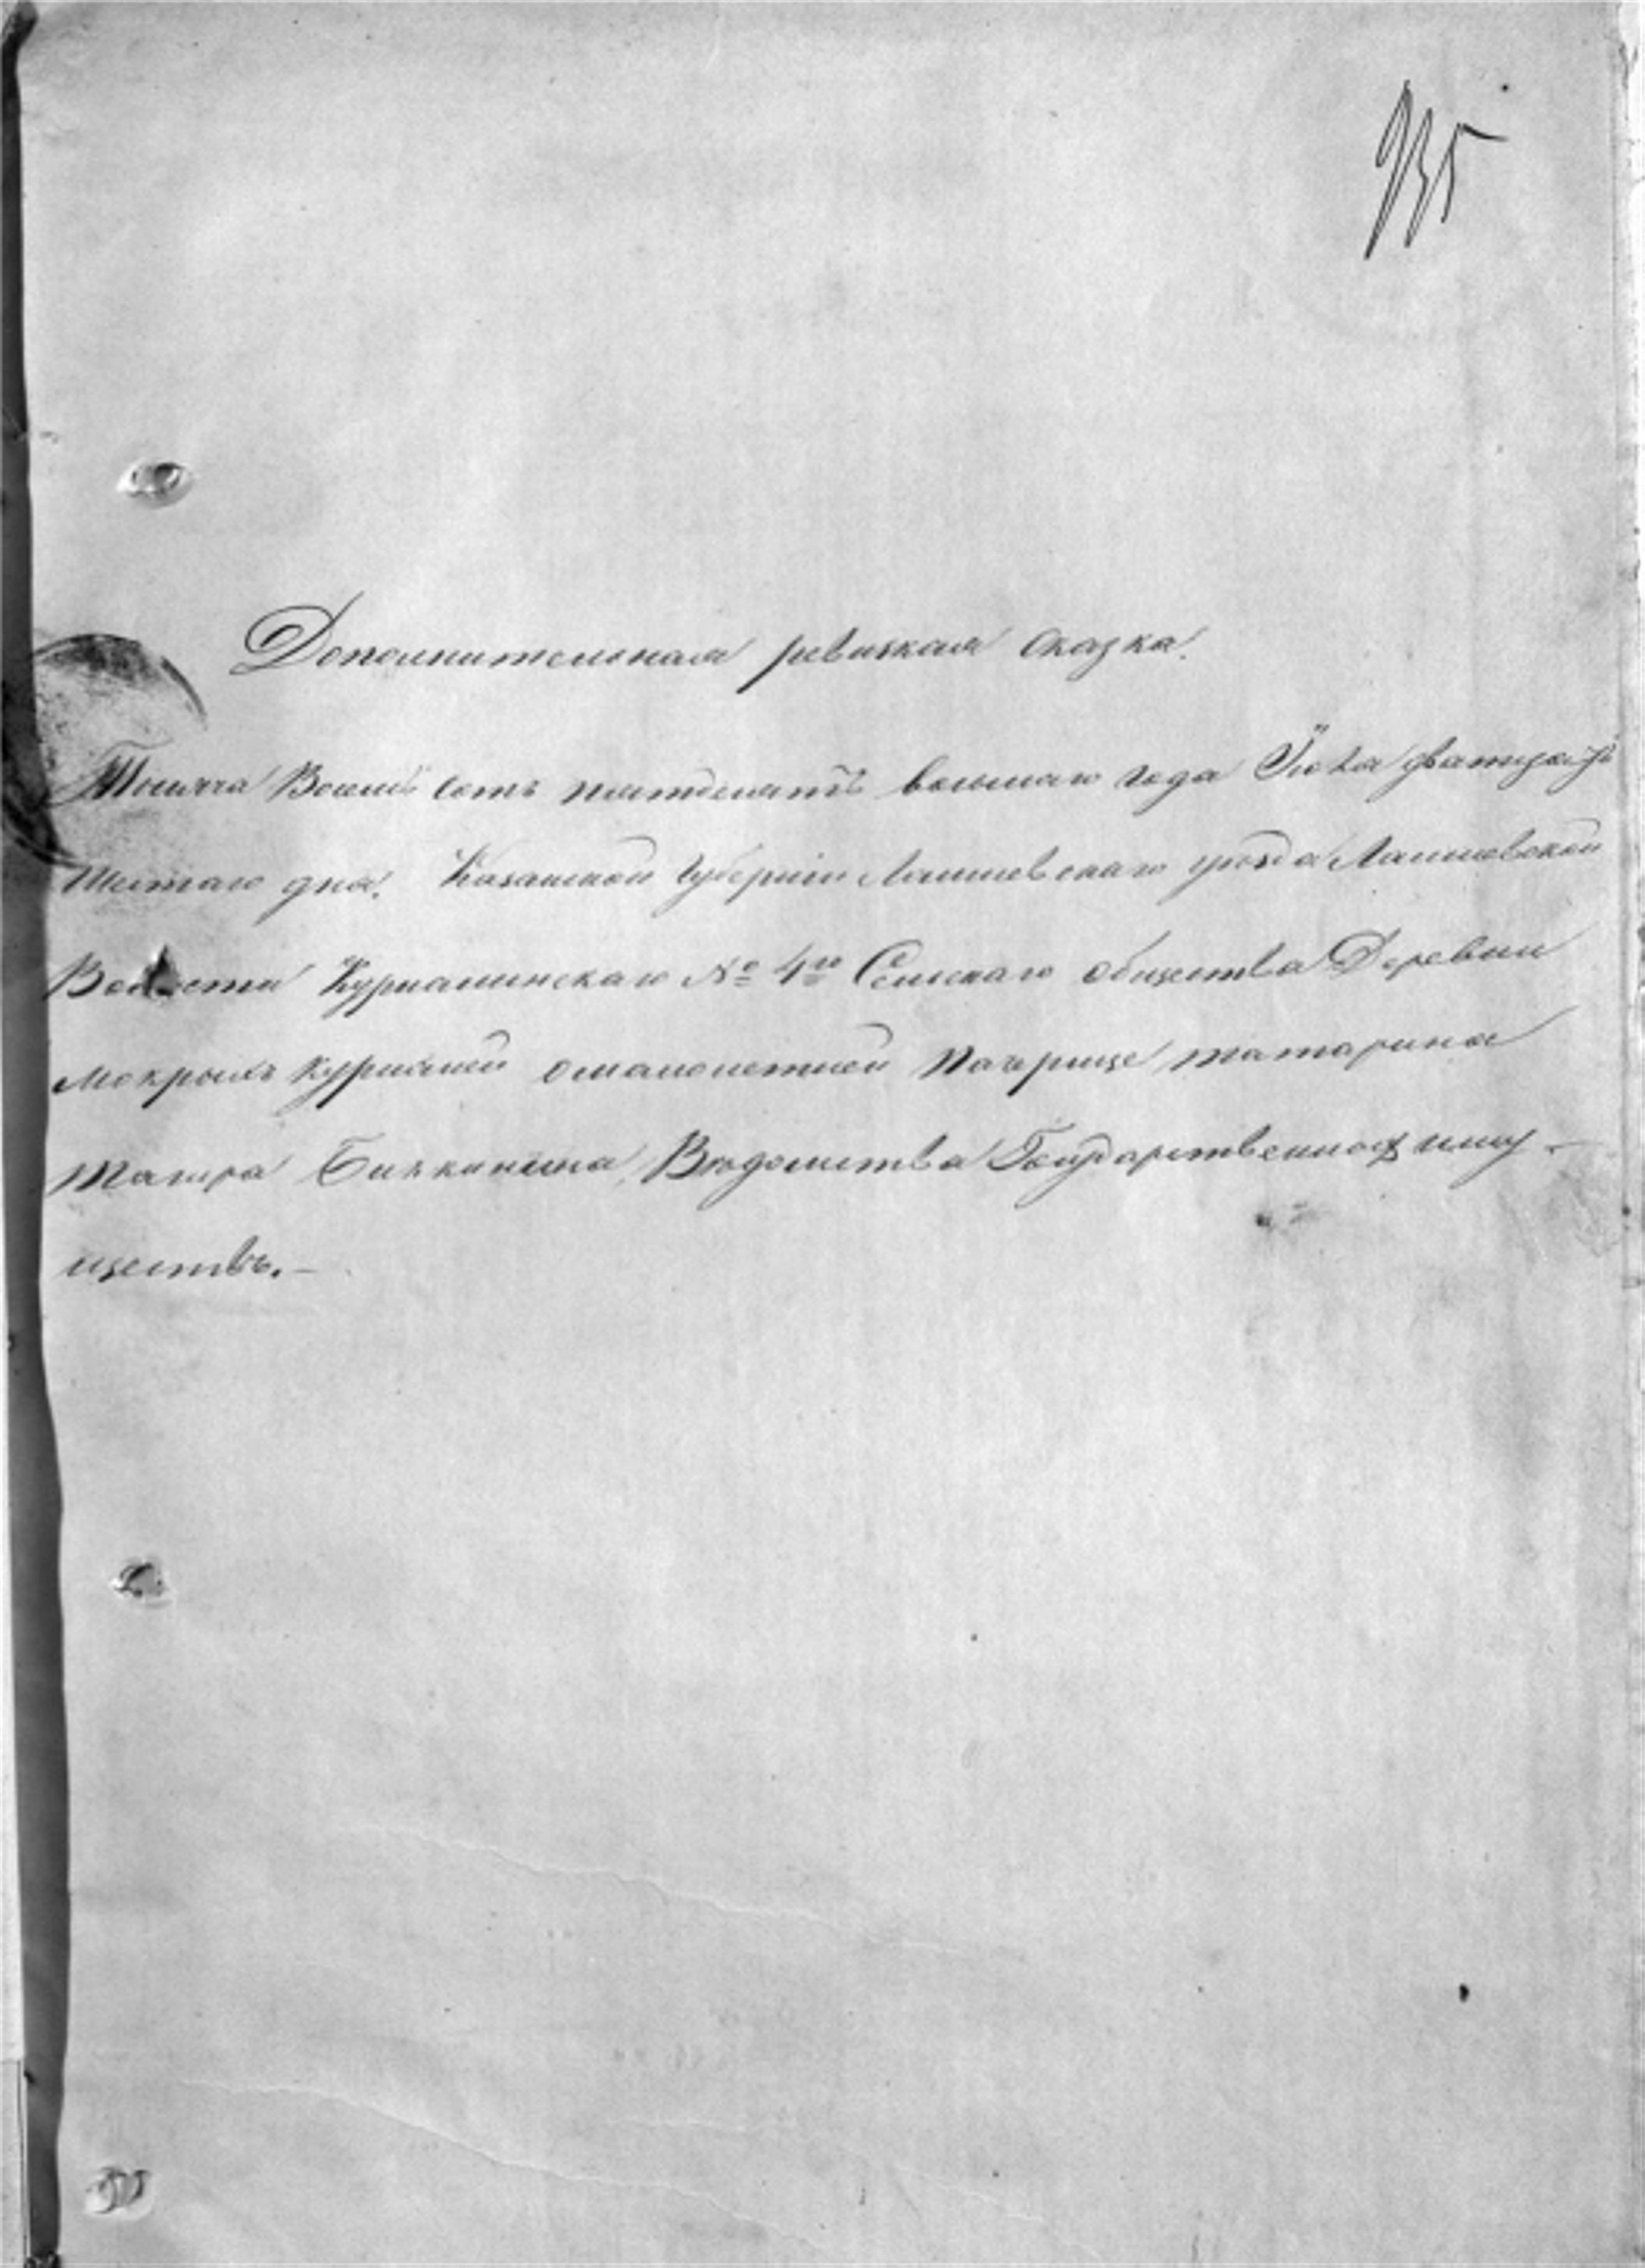 935
Дополнительная ревизкая сказка.
Тысяча Восемь сотъ пятдесятъ восьмаго года Іюля дватцать
шестаго дня. Казанской Губерніи Лаишевскаго уезда Лаишевской
Волости Курманинскаго № 4го Сельскаго общества Деревни
Мокрыхъ Курналей о малолетней дочрище татарина
Бичкинѣва, Ведомства Государственныхъ иму-
ществъ.-